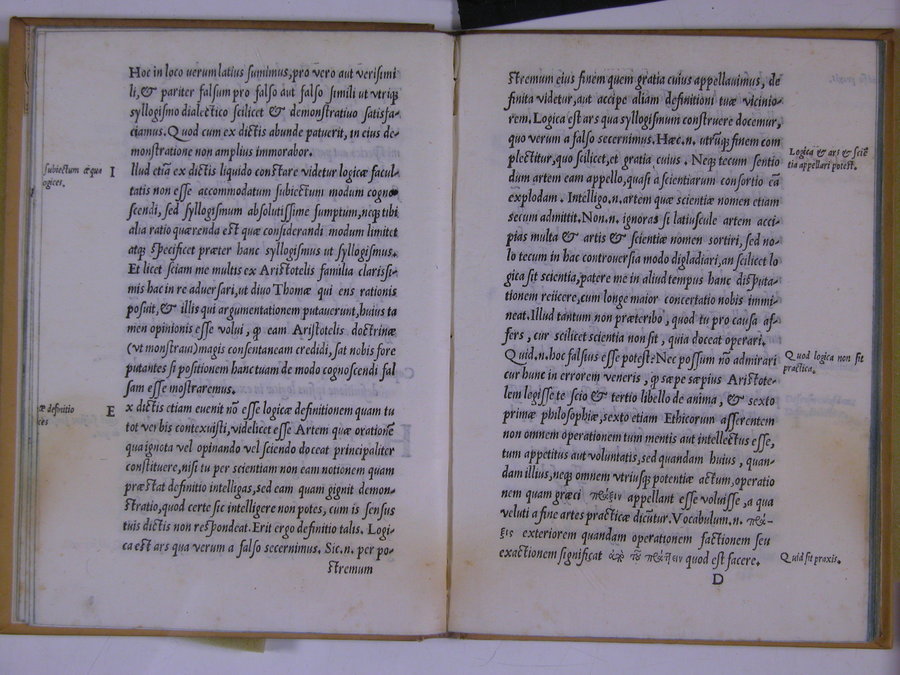 Hoc in loco uerum latius sumimus, pro vero aut verisimi
li, & pariter falsum pro falso aut falso simili ut vtriq;
syllogismo dialectico scilicet & demonstratiuo satisfa-
ciamus. Quod cum ex dictis abunde patuerit, in eius de-
monstratione non amplius immorabor.
subiectum
ogices.
Illud etiã ex dictis liquido constare videtur logicæ facul-
tatis non esse accommodatum subiectum modum cogno
scendi, sed syllogismum absolutissime sumptum, neq; tibi
alia ratio quærenda est quæ considerandi modum limitet
atq; specificet præter hanc syllogismus ut syllogismus.
Et licet sciam me multis ex Aristotelis familia clarissi-
mis hac in re aduersari, ut diuo Thomæ qui ens rationis
posuit, & illis qui argumentationem putauerunt, huius ta
men opinionis esse volui, q̃ eam Aristotelis doctrinæ
(vt monstraui) magis consentaneam credidi, sat nobis fore
putantes si positionem hanc tuam de modo cognoscendi fal
sam esse mostraremus.
æ definitio
ces
Ex dictis etiam euenit nõ esse logicæ definitionem quam tu
tot verbis contexuisti, videlicet esse Artem quæ oratione
qua ignota vel opinando vel sciendo doceat principaliter
constituere, nisi tu per scientiam non eam notionem quam
præstat definitio intelligas, sed eam quam gignit demon-
stratio, quod certe sic intelligere non potes, cum is sensus
tuis dictis non respondeat. Erit ergo definitio talis. Logi-
ca est ars qua verum a falso secernimus. Sic.n. per po-
stremum
stremum eius finem quem gratia cuius appellauimus, de
finita videtur, aut accipe aliam definitioni tuæ vicinio-
rem. Logica est ars qua syllogismum construere docemur,
quo verum a falso secernimus. Hæc.n. utrũq; finem com
plectitur, quo scilicet, et gratia cuius. Neq; tecum sentio
Logica & ars & sciẽ
tia appellari potest.
dum artem eam appello, quasi a scientiarum consortio eã
explodam. Intelligo.n. artem quæ scientiæ nomen etiam
secum admittit. Non.n. ignoras si latiuscule artem acci-
pias multa & artis & scientiæ nomen sortiri, sed no-
lo tecum in hac controuersia modo digladiari, an scilicet lo
gica sit scientia, patere me in aliud tempus hanc disputa-
tionem reiicere, cum longe maior concertatio nobis immi-
neat. Illud tantum non præteribo, quod tu pro causa af-
fers, cur scilicet scientia non sit, quia doceat operari.
Quod logica non sit
practica.
Quid.n. hoc falsius esse potest? Nec possum nõ admirari
cur hunc in errorem veneris, q̃ sæpe sæpius Aristote-
lem legisse te scio & tertio libello de anima, & sexto
primæ philosophiæ, sexto etiam Ethicorum asserentem
non omnem operationem tum mentis aut intellectus esse,
tum appetitus aut voluntatis, sed quandam huius, quan-
dam illius, neq; omnem vtriusq; potentiæ actum, operatio
nem quam græci πρᾶξιν appellant esse voluisse, a qua
veluti a fine artes practicæ dicũtur. Vocabulum.n. πρᾶ-
ξις exteriorem quandam operationem factionem seu
exactionem significat ἀπὸ τοῦ πράττειν quod est facere.
Quid sit praxis.
D